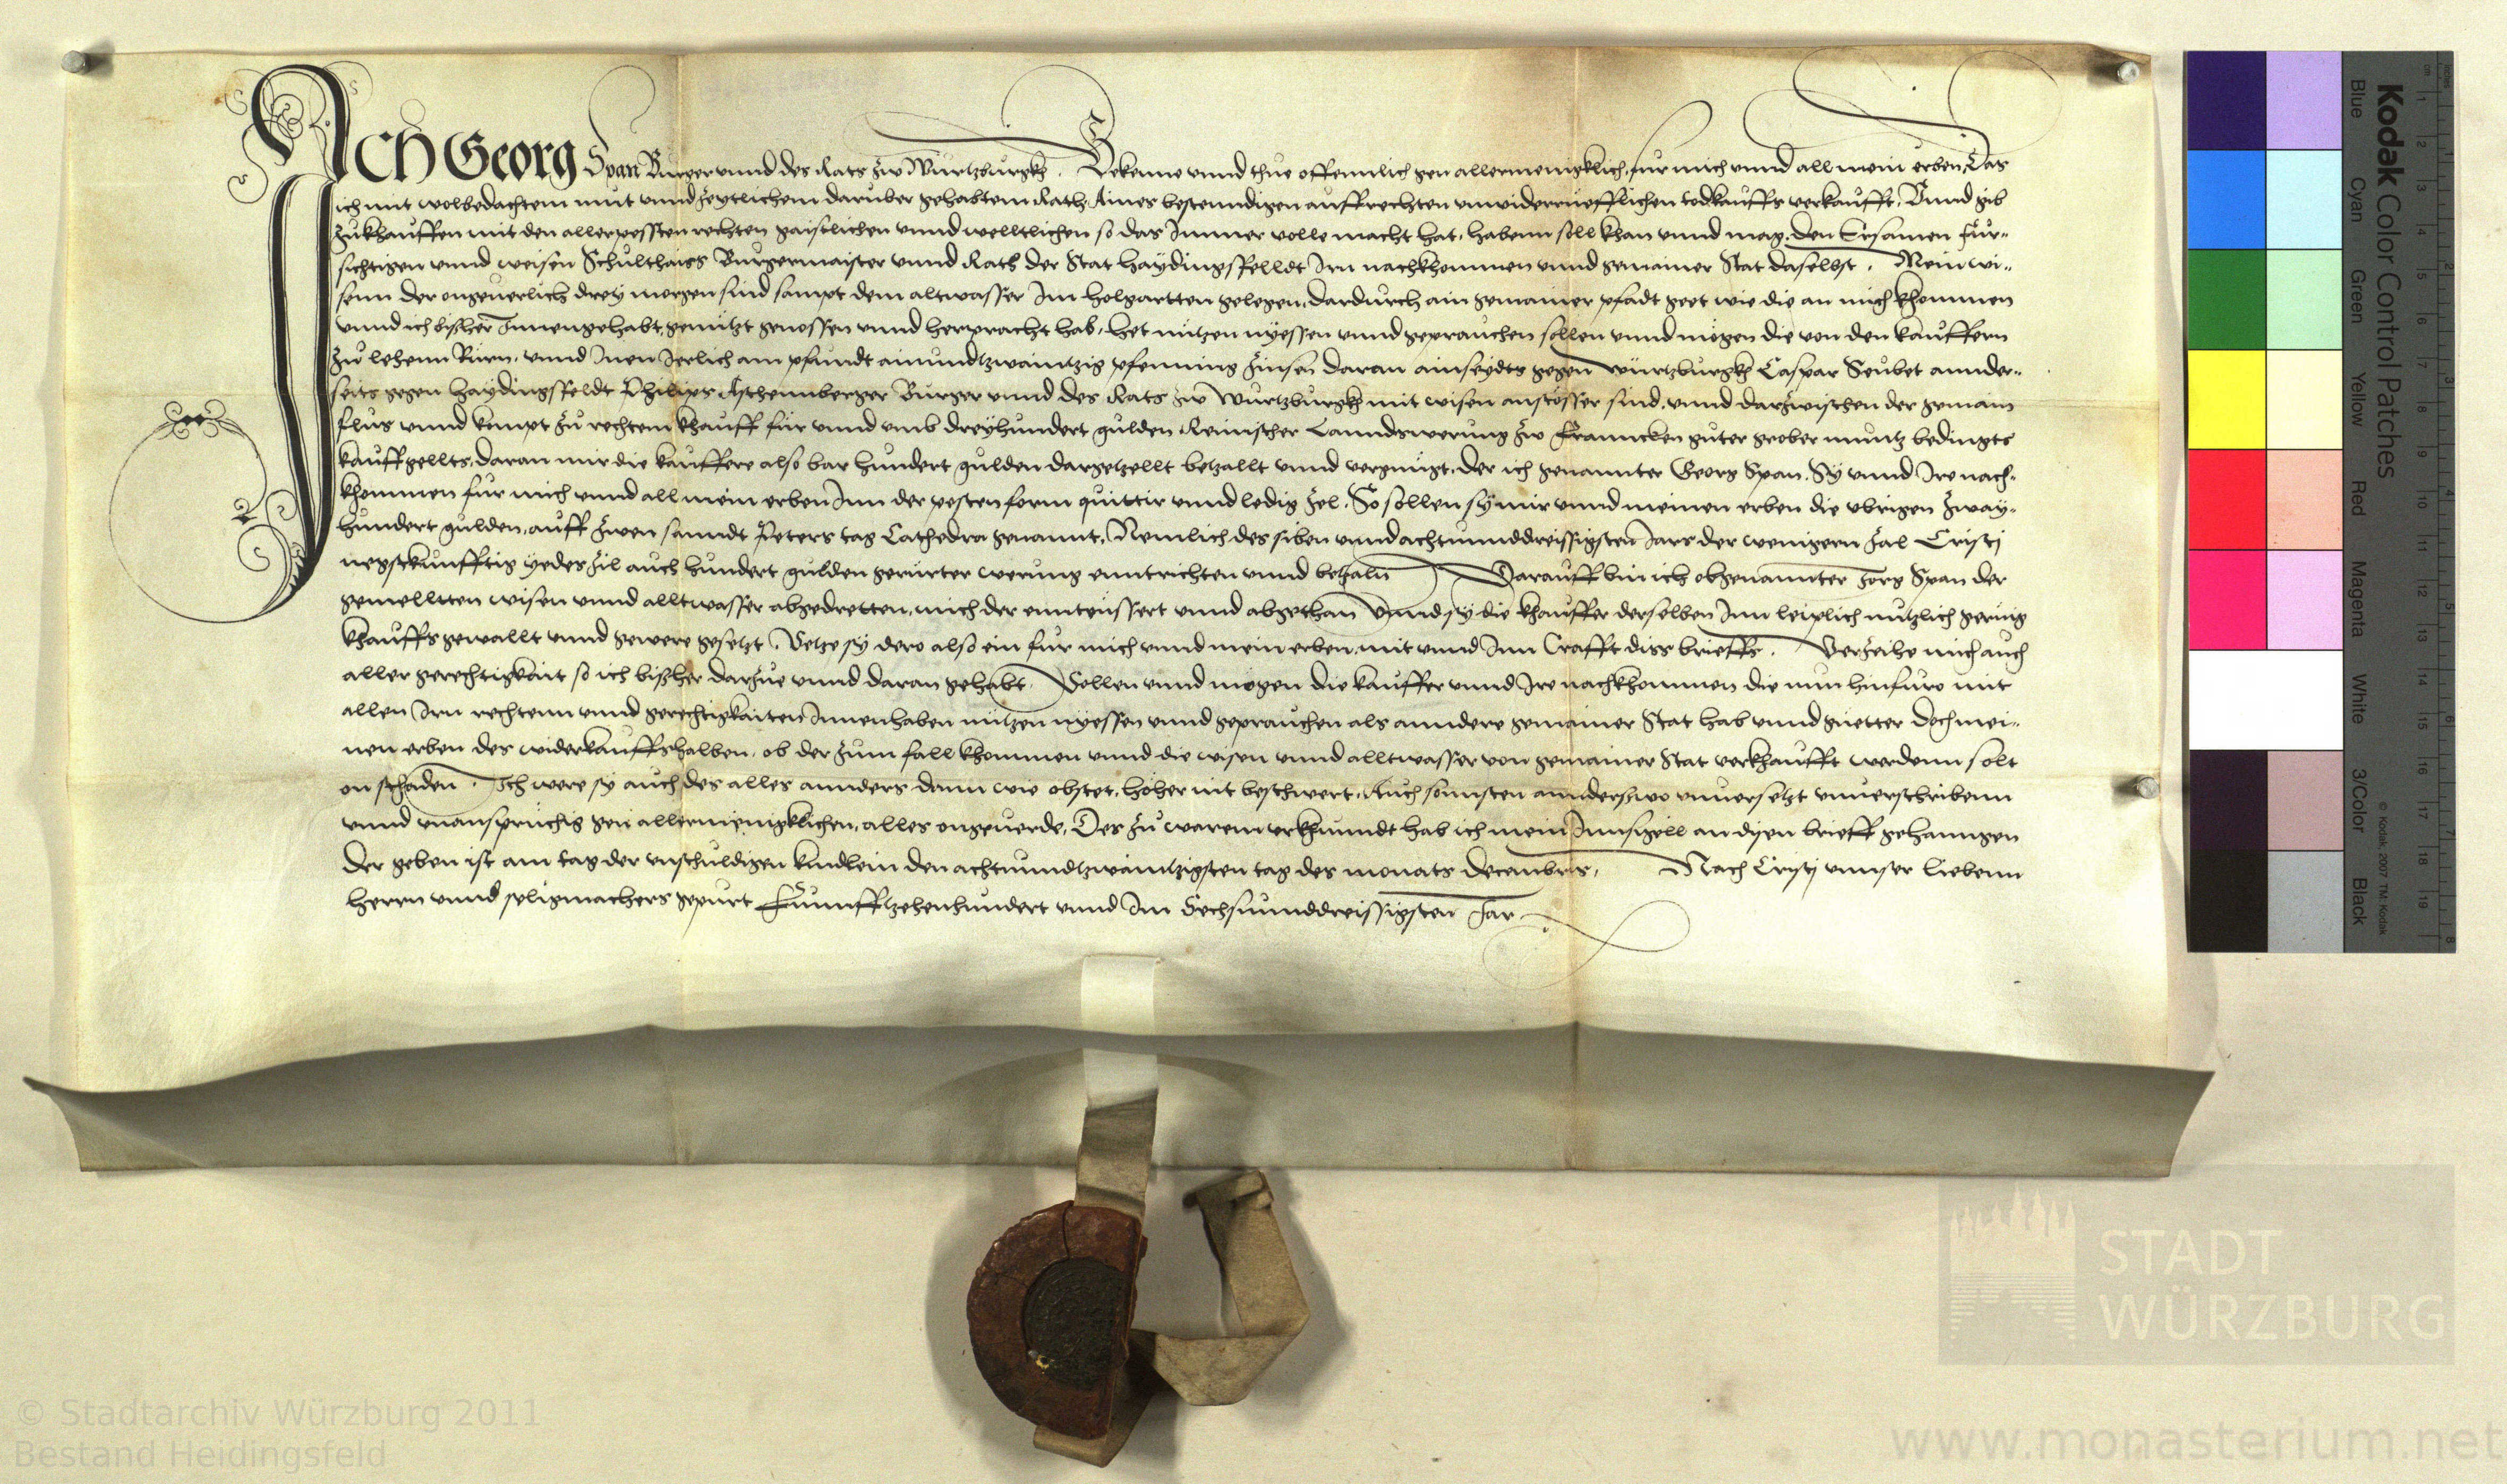 ICH Georg Span Burger vnnd des Rats zw Wurtzburgkh. Bekenne vnnd thue offennlich gen allermenigklich, fur mich vnnd all mein erben, Das
ich mit wolbedachtem mut vnnd zeytlichem daruber gehabtem Rath, Aines bestenndigen auffrechten vnwiderruefflichen todkauffs verkaufft, Vnnd gib
zukhauffen mit den allerpessten rechten gaistlichen vnnd welltlichen so das Immer volle macht hat, habenn soll khan vnnd mag, den Ersamen fur-
sichtigen vnnd weisen Schulthaiss Burgermaister vnnd Rath der Stat haydingsfelldt Irn nachkhommen vnnd gemainer Stat daselbst. Mein wi-
senn der ongeuerlich drey morgen sind sampt dem altwasser Im holgartten gelegen, dardurch ain gemainer pfadt geet wie die an mich khommen
vnnd ich bißher Innengehabt, genutzt genossen vnnd herpracht hab, het nutzen nyessen vnnd geprauchen sollen vnnd mogen die von den kauffern
zu lehenn Rurn, vnnd Inen Jerlich am pfundt ainundtzwaintzig pfenning Zinsen daran ainseydts gegen Wurtzburgkh Caspar Seubet annder-
seits gegen haydingsfeldt Philips Aschennberger Burger vnnd des Rats zw Wurtzburgkh mit wisen anstosser sind, vnnd darzwischen der gemain
flus vnnd kompt zu rechtem khauff fur vnnd vmb dreyhundert gulden Reinischer Lanndswerung zw Franncken guter grober muntz bedingts
kauffgellts, daran mir die kauffere also bar hundert gulden dargetzellt betzallt vnnd vergnugt, der ich genannter Georg Span, Sy vnnd Ire nach-
khommen fur mich vnnd all mein erben Inn der pesten form quittir vnnd ledig zel. So sollen sy mir vnnd meinen erben die vbrigen zway-
hundert gulden, auff zwen sanndt Peters tag Cathedra genannt, Nemlich des siben vnnd achtunnddreissigsten Jars der wenigern zal Cristj
negstkunfftig yedes zil auch hundert gulden gerurter werung enntrichten vnnd betzaln Darauff bin ich obgenannter Jorg Span der
gemelltten wisen vnnd alltwasser abgedretten, mich der enneussert vnnd abgethan Vnnd sy die khauffer derselben Inn leiplich nutzlich gerueig
khauffsgewallt vnnd gewere gesetzt. Setze sy dero also ein fur mich vnnd mein erben, mit vnnd Inn Crafft diss brieffs. Verzeihe mich auch
aller gerechtigkait so ich bißher darzue vnnd daran gehabt. Sollen vnnd mogen die kauffer vnnd Ire nachkhommen die nun hinfuro mit
allen Irn rechtenn vnnd gerechtigkaiten Innenhaben nutzen nyessen vnnd geprauchen als anndere gemainer Stat hab vnnd guetter doch mei-
nen erben des widerkauffshalben, ob der zum fall khommen vnnd die wisen vnnd alltwasser von gemainer Stat verkhaufft werdenn solt
on schaden. Ich were sy auch des alles annders dann wie obstet, hoher nit beschwert, Auch sonnsten annderswo vnuersetzt vnuerschribenn
vnnd vnansspruchig gen allermenigklichen, alles ongeuerde, Des zu warem vrkhunndt hab ich mein Innsigell an disen brieff gehanngen
Der geben ist am tag der vnschuldigen kindlein den achtunndtzwaintzigsten tag des monats decembris, Nach Cristj vnnser liebenn
herrn vnnd seligmachers gepurt Funnfftzehenhundert vnnd Im Sechsunnddreissigsten Jar
Kodak Color Control Patches
Blue Cyan Green Yellow Red Magenta White 3/Color Black
© Kodak, 2007 TM: Kodak
STADT
WÜRZBURG
© Stadtarchiv Würzburg 2011
Bestand Heidingsfeld
www.monasterium.net